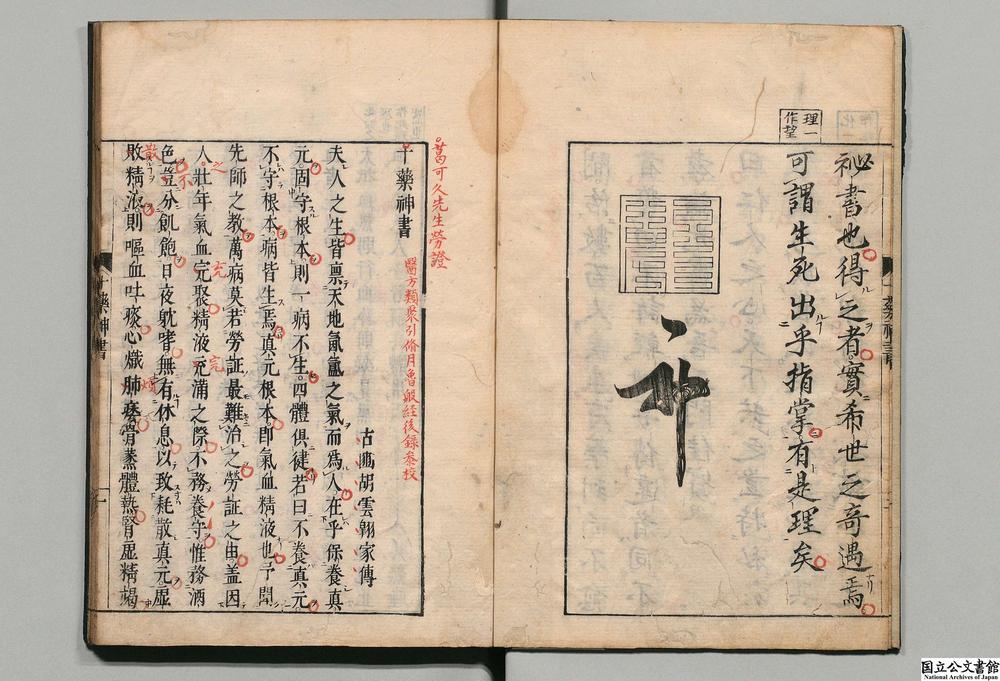 理一
作望
祕書也得之者實希世之奇遇焉
可謂生死出乎指掌有是理矣
十藥神書
葛可久先生勞證
十藥神書
醫方類聚引脩月魯般經後錄參校
古𤅬胡雲翱家傳
夫人之生皆禀天地氤氳之氣而爲人在乎保養眞
元固守根本則一病不生四體俱健若曰不養眞元
不守根本病皆生焉眞元根本即氣血精液也予聞
先師之教萬病莫若勞証最難治之勞証之由盖因
人壯年氣血完聚精液充滿之際不務養守惟務酒
色豈分飢飽日夜躭嗜無有休息以致耗散眞元虛
敗精液則嘔血吐痰心熾肺痿骨蒸體熱腎虛精竭
之
充
完
不
散
十藥神書
一
国立公文書館
National Archives of Japan